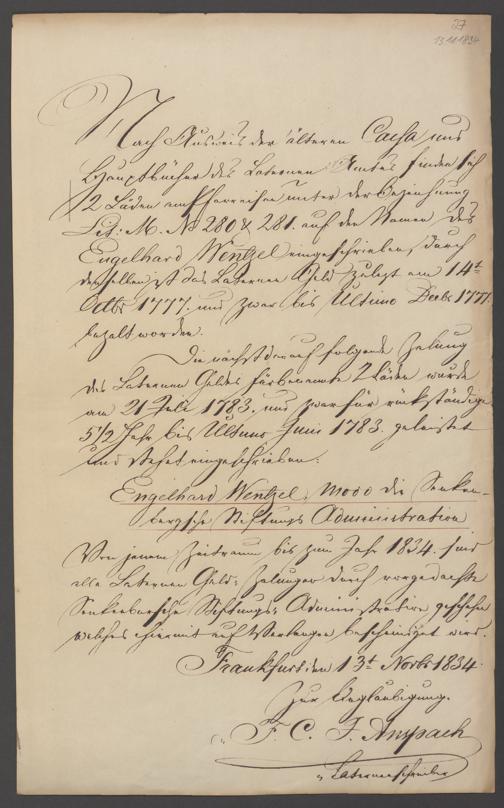 27
13.11.1834
Nach Ausweis der älteren Cassa und
Hauptbücher des Laternen Amtes finden sich
2 Läden am Pfarreisen unter der Bezeichnung
Lit: M. No 280 & 281. auf den Namen des
Engelhard Wentzel eingeschrieben, durch
denselben ist das Laternen Geld zulezt am 14t
Octbr 1777. und zwar bis Ultimo Decbr 1777.
bezalt worden.
Die nächst darauf folgende Zalung
des Laternen Geldes für benannte 2 Läden wurde
am 21 Juli 1783. und zwar für rückständige
5 1/2 Jahr bis Ultimo Juni 1783. geleistet
und stehet eingeschrieben:
Engelhard Wentzel, modo die Senken-
bergsche Stiftungs Administration
Von jenem Zeitraum bis zum Jahr 1834. sind
alle Laternen Geld-Zalungen durch vorgedachte
Senkenbersche Stiftungs-Administration geschehen
welches hiermit auf Verlangen bescheiniget wird.
Frankfurt den 13t Novbr 1834.
Zur Beglaubigung.
F. C. J. Anspach
Laternenschreiber